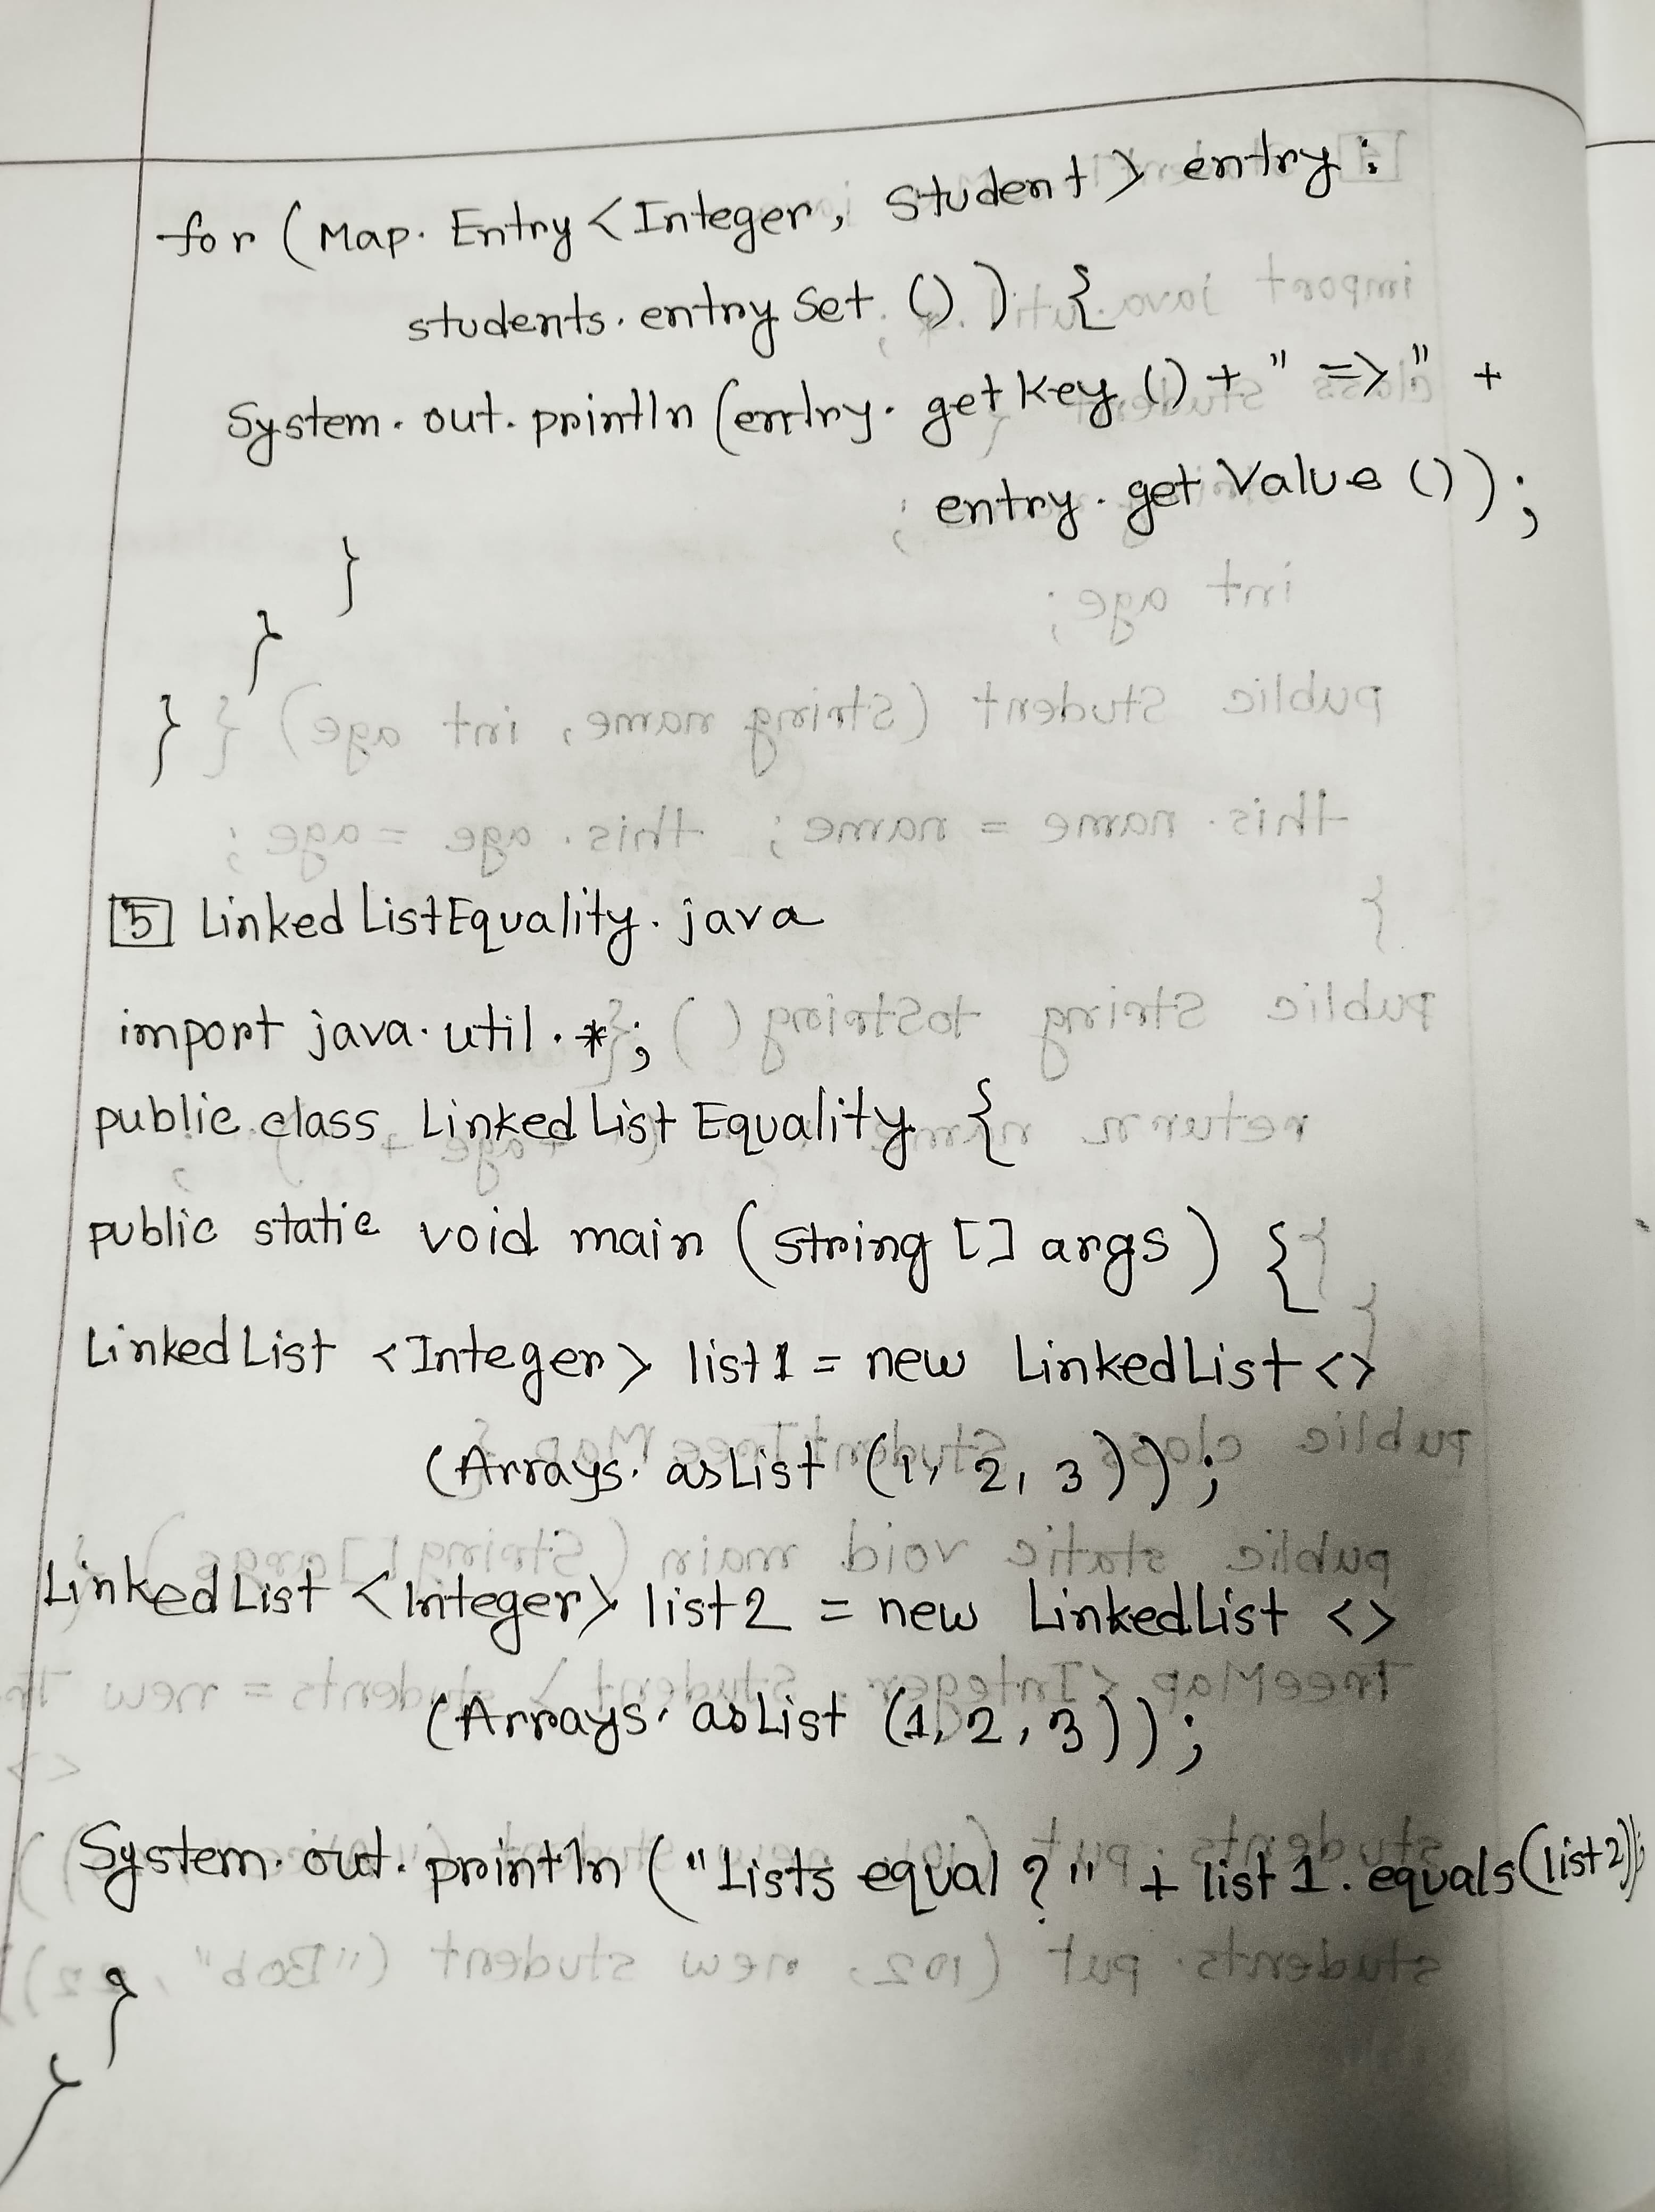 for (Map.Entry<Integer, Student> entry:
students.entrySet()) {
System.out.println(entry.getKey() + " =>" +
entry.getValue());
}
}
}
5 LinkedListEquality.java
import java.util.*;
public class LinkedListEquality {
public static void main (String [] args) {
LinkedList <Integer> list1 = new LinkedList<>
(Arrays.asList (1, 2, 3));
LinkedList <Integer> list2 = new LinkedList <>
(Arrays.asList (1, 2, 3));
System.out.println ("Lists equal ? " + list1.equals(list2));
}
}